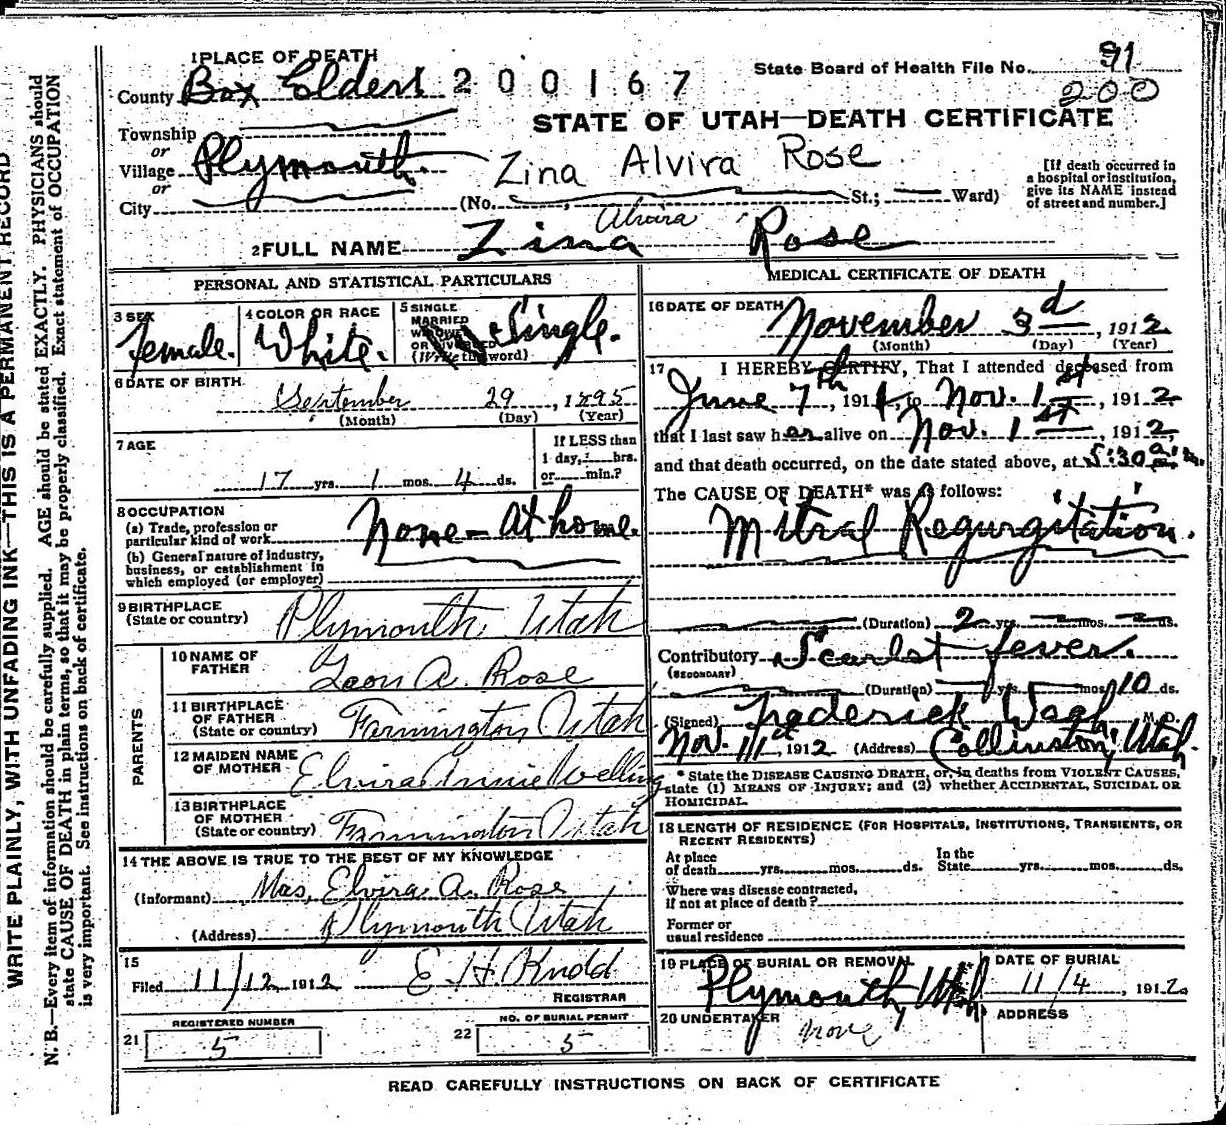 WRITE PLAINLY, WITH UNFADING INK—THIS IS A PERMANENT RECORD
N. B.—Every item of information should be carefully supplied. AGE should be stated EXACTLY. PHYSICIANS should
state CAUSE OF DEATH in plain terms, so that it may be properly classified. Exact statement of OCCUPATION
is very important. See instructions on back of certificate.
1 PLACE OF DEATH
County Box Elder 200167
State Board of Health File No. 91
200
STATE OF UTAH—DEATH CERTIFICATE
Township
or
Village Plymouth
or
City
Zina Alvira Rose
(No. St.; Ward)
[If death occurred in
a hospital or institution,
give its NAME instead
of street and number.]
2 FULL NAME Zina Alvira Rose
PERSONAL AND STATISTICAL PARTICULARS
3 SEX
Female.
4 COLOR OR RACE
White.
5 SINGLE
MARRIED
WIDOWED
OR DIVORCED
(Write the word)
Single.
6 DATE OF BIRTH
September 29, 1895
(Month) (Day) (Year)
7 AGE
17 yrs. 1 mos. 4 ds.
If LESS than
1 day, hrs.
or min.?
8 OCCUPATION
(a) Trade, profession or
particular kind of work
None – At home.
(b) General nature of industry,
business, or establishment in
which employed (or employer)
9 BIRTHPLACE
(State or country)
Plymouth, Utah
PARENTS
10 NAME OF
FATHER
Leon A. Rose
11 BIRTHPLACE
OF FATHER
(State or country)
Farmington Utah
12 MAIDEN NAME
OF MOTHER
Elvira Annie Welling
13 BIRTHPLACE
OF MOTHER
(State or country)
Farmington Utah
14 THE ABOVE IS TRUE TO THE BEST OF MY KNOWLEDGE
(Informant) Mrs, Elvira A. Rose
(Address) Plymouth Utah
15
Filed 11/12 1912 E. H. Rudd
REGISTRAR
21 REGISTERED NUMBER
5
22 NO. OF BURIAL PERMIT
5
MEDICAL CERTIFICATE OF DEATH
16 DATE OF DEATH
November 3d, 1912
(Month) (Day) (Year)
17 I HEREBY CERTIFY, That I attended deceased from
June 7th, 191 , to Nov. 1st, 1912
that I last saw her alive on Nov. 1st, 1912,
and that death occurred, on the date stated above, at 5:30 a.m.
The CAUSE OF DEATH* was as follows:
Mitral Regurgitation.
(Duration) 2 yrs. mos. ds.
Contributory Scarlet fever.
(SECONDARY)
(Duration) yrs. mos. 10 ds.
(Signed) Frederick Wagh, M. D.
Nov. 11st 1912 (Address) Collinston, Utah.
* State the DISEASE CAUSING DEATH, or, in deaths from VIOLENT CAUSES,
state (1) MEANS OF INJURY; and (2) whether ACCIDENTAL, SUICIDAL OR
HOMICIDAL.
18 LENGTH OF RESIDENCE (FOR HOSPITALS, INSTITUTIONS, TRANSIENTS, OR
RECENT RESIDENTS)
At place
of death yrs. mos. ds.
In the
State yrs. mos. ds.
Where was disease contracted,
if not at place of death?
Former or
usual residence
19 PLACE OF BURIAL OR REMOVAL
Plymouth, Utah.
DATE OF BURIAL
11/4, 1912
20 UNDERTAKER
None
ADDRESS
READ CAREFULLY INSTRUCTIONS ON BACK OF CERTIFICATE